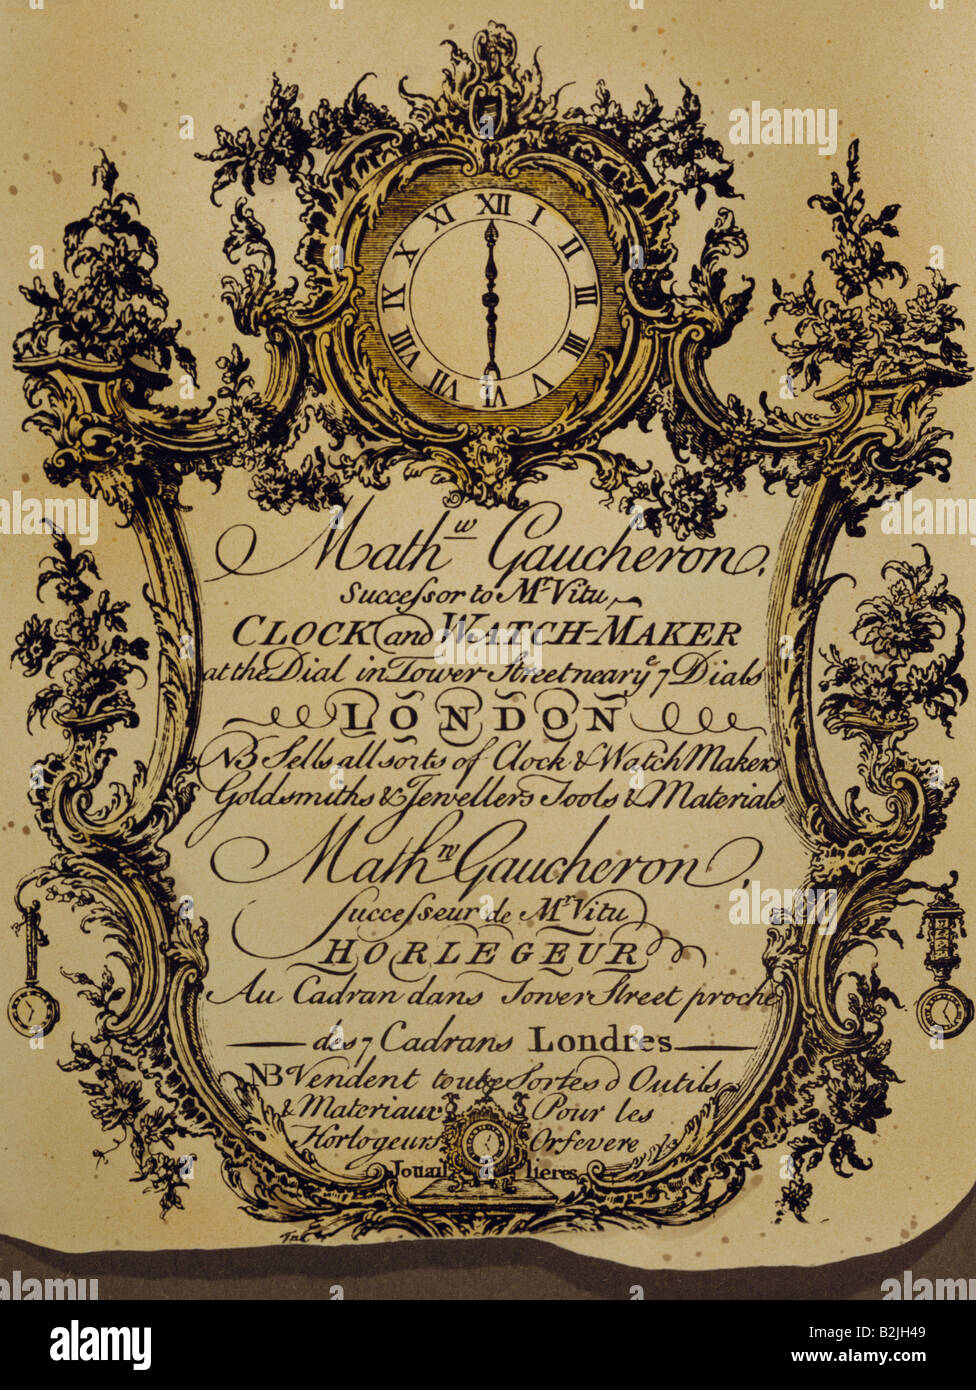 XII I II III IIII V VI VII VIII IX X XI
Mathw Gaucheron,
Successor to Mr Vitu,
CLOCK and WATCH-MAKER
at the Dial in Tower Street near ye 7 Dials
LONDON
NB Sells all sorts of Clock & Watch Makers
Goldsmiths & Jewellers Tools & Materials
Mathw Gaucheron,
Successeur de Mr Vitu
HORLEGEUR
Au Cadran dans Tower Street proche
des 7 Cadrans Londres
NB Vendent toute Sortes d Outils
& Materiaux Pour les
Horlogeurs Orfevere
Jouail lieres
alamy
alamy
Image ID: B2JH49
www.alamy.com